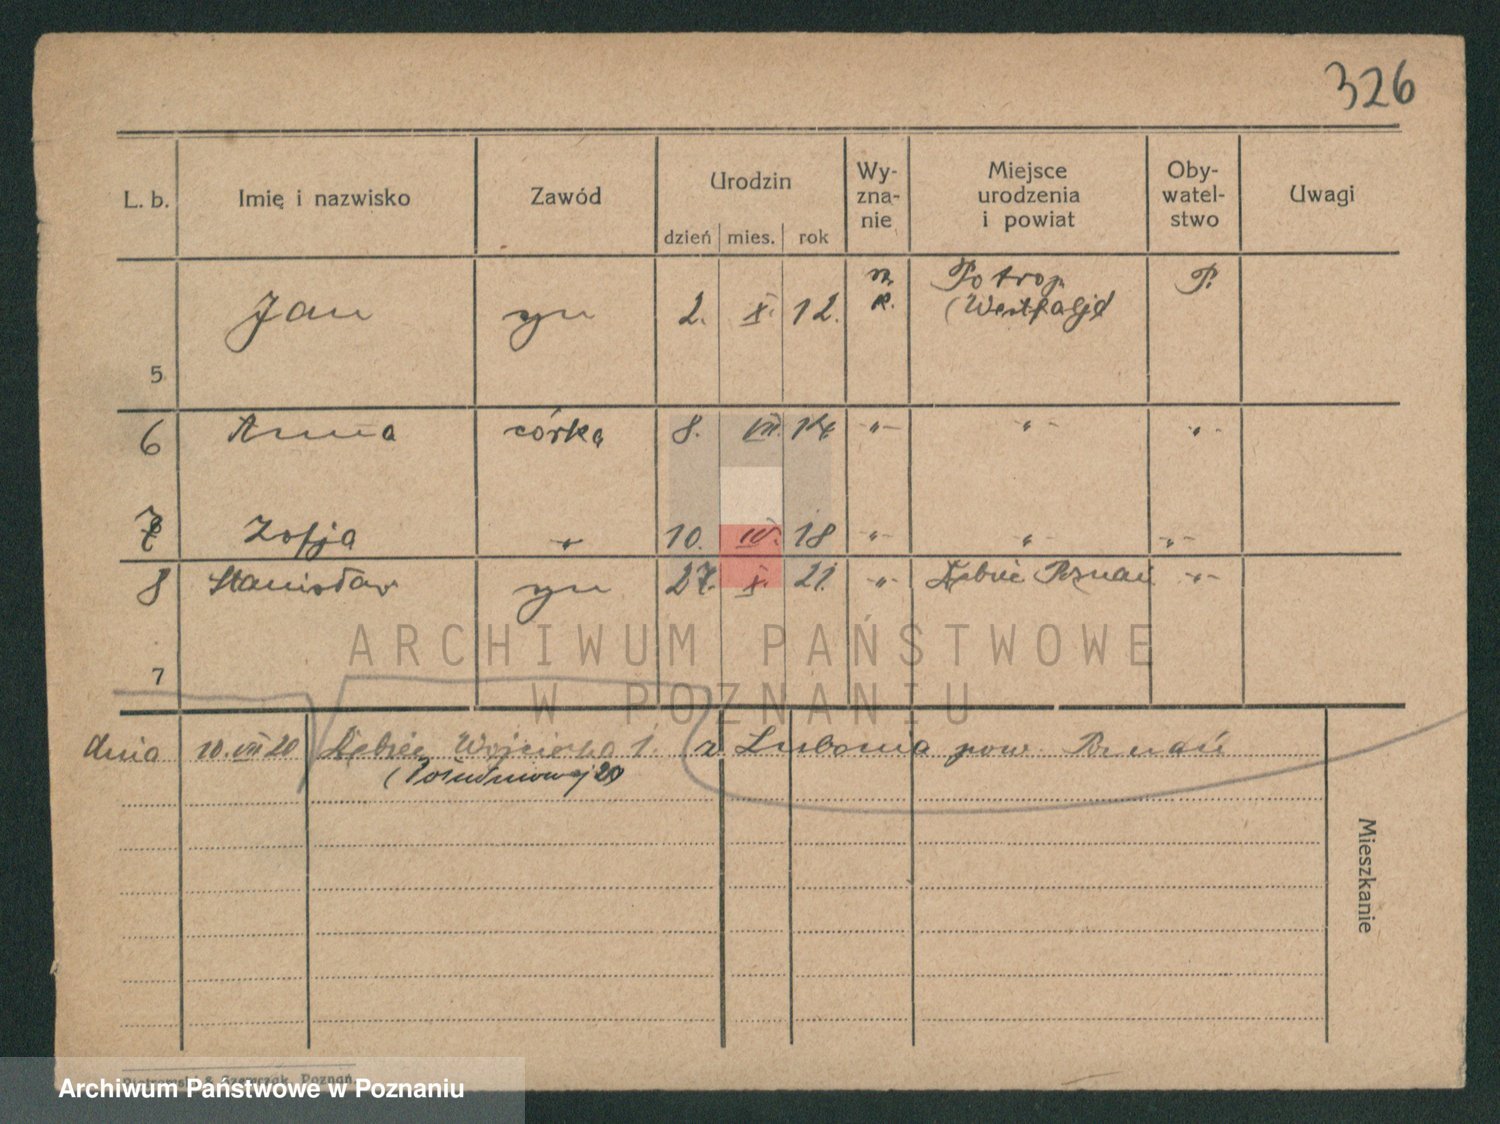 326
L. b. Imię i nazwisko Zawód Urodzin dzień mies. rok Wy-zna-nie Miejsce urodzenia i powiat Oby-watel-stwo Uwagi
5 Jan syn 2. X. 12. r. k. Botrop (Westfalja) P.
6 Anna córka 8. VII. 14 -"- -"- -"-
7 Zofja -"- 10. IV. 18 -"- -"- -"-
8 Stanisław syn 27. X. 21. -"- Dębiec Poznań -"-
7
ARCHIWUM PAŃSTWOWE
W POZNANIU
dnia 10. VII 20 Dębiec 1. z Lubonia pow. Poznań
(Południowej 20)
Mieszkanie
Poznań
Archiwum Państwowe w Poznaniu